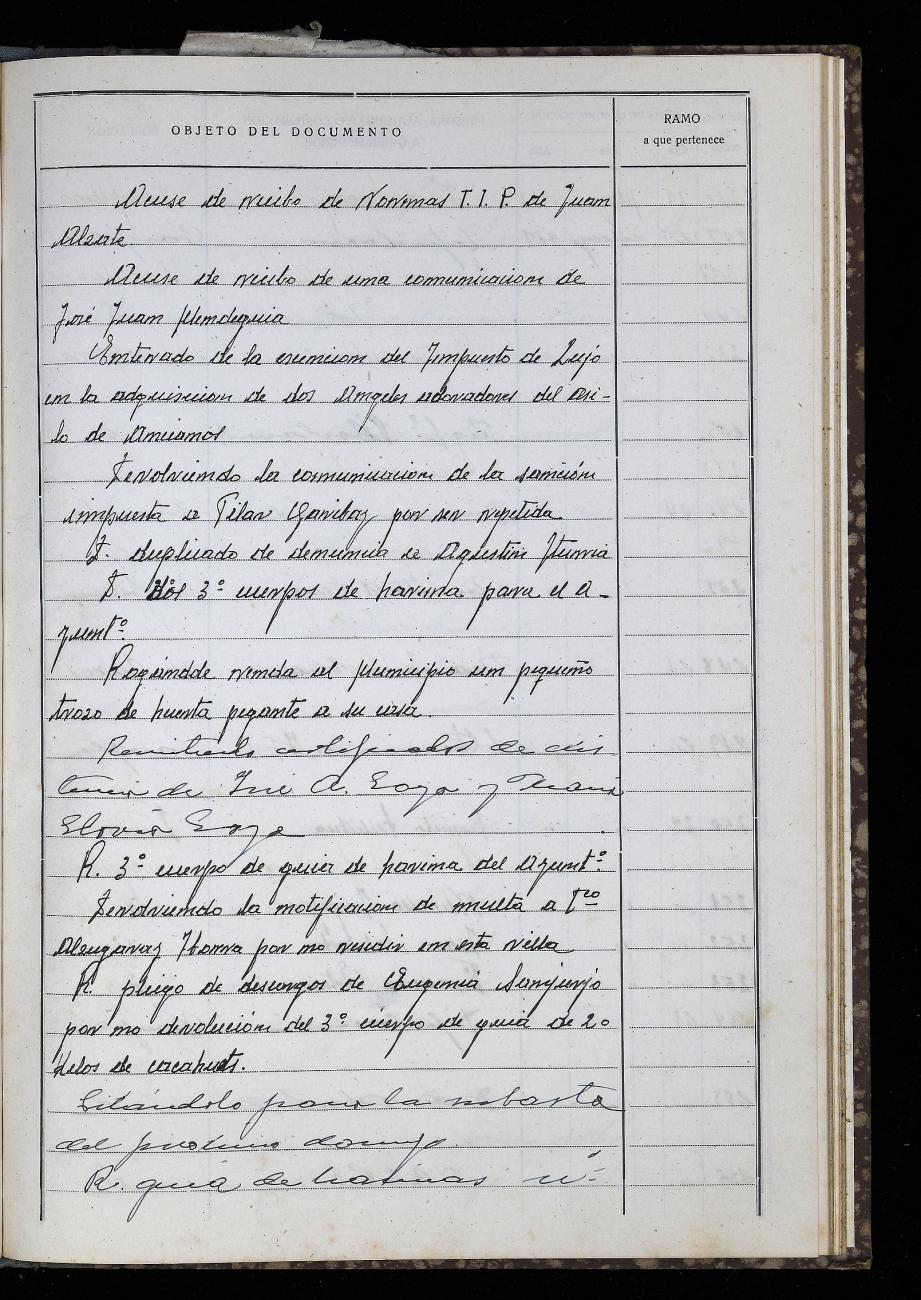 OBJETO DEL DOCUMENTO
RAMO
a que pertenece
Acuse de recibo de Normas T. I. P. de Juan
Alzate
Acuse de recibo de una comunicacion de
José Juan Mendeguia
Enterado de la exencion del Impuesto de Lujo
en la adquisicion de dos Angeles adoradores del Asi-
lo de Ancianos
Devolviendo la comunicacion de la sanción
impuesta a Pilar Garibay por ser repetida
D. duplicado de denuncia a Agustin Iturria
D. dos 3º cuerpos de harina para el A-
yuntº.
Rogándole venda al Municipio un pequeño
trozo de huerta pegante a su casa.
Remitiendo certificados de exis
tencia de José A. Goya y Maria
Goya
R. 3º cuerpo de guia de harina del Ayuntº.
Devolviendo la notificacion de multa a
Alzugaray Ibarra por no residir en esta villa
R. pliego de descargos de Eugenia Sanjurjo
por no devolución del 3º cuerpo de guia de 20
kilos de cacahuets.
Citándolo para la subasta
del próximo domingo
R. guía de harinas nº